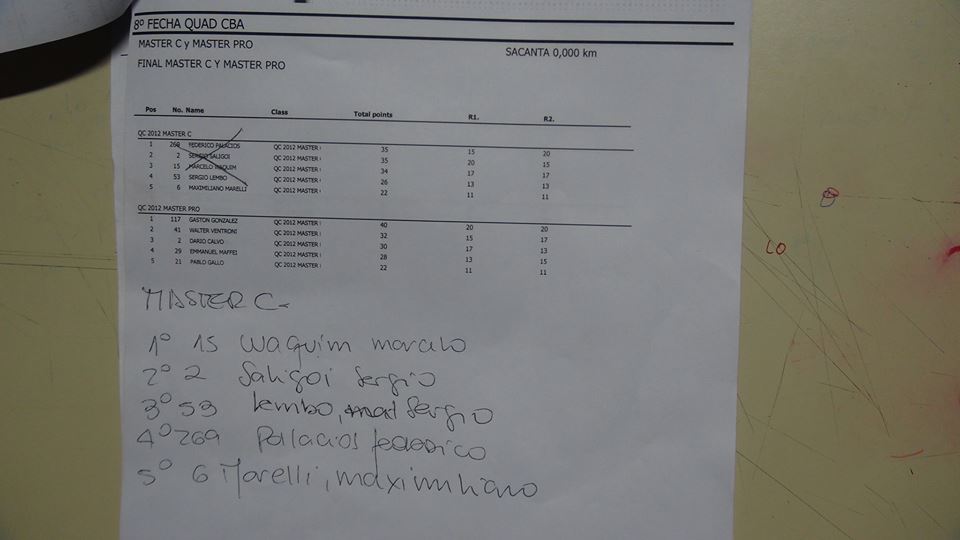 8º FECHA QUAD CBA
MASTER C y MASTER PRO SACANTA 0,000 km
FINAL MASTER C Y MASTER PRO
Pos No. Name Class Total points R1. R2.
QC 2012 MASTER C
1 269 FEDERICO PALACIOS QC 2012 MASTER 35 15 20
2 2 SERGIO SALIGOI QC 2012 MASTER 35 20 15
3 15 MARCELO WAQUIM QC 2012 MASTER 34 17 17
4 53 SERGIO LEMBO QC 2012 MASTER 26 13 13
5 6 MAXIMILIANO MARELLI QC 2012 MASTER 22 11 11
QC 2012 MASTER PRO
1 117 GASTON GONZALEZ QC 2012 MASTER 40 20 20
2 41 WALTER VENTRONI QC 2012 MASTER 32 15 17
3 2 DARIO CALVO QC 2012 MASTER 30 17 13
4 29 EMMANUEL MAFFEI QC 2012 MASTER 28 13 15
5 21 PABLO GALLO QC 2012 MASTER 22 11 11
MASTER C-
1º 15 Waquim marcelo
2º 2 Saligoi Sergio
3º 53 Lembo, Sergio
4º 269 Palacios federico
5º 6 Marelli, maximiliano